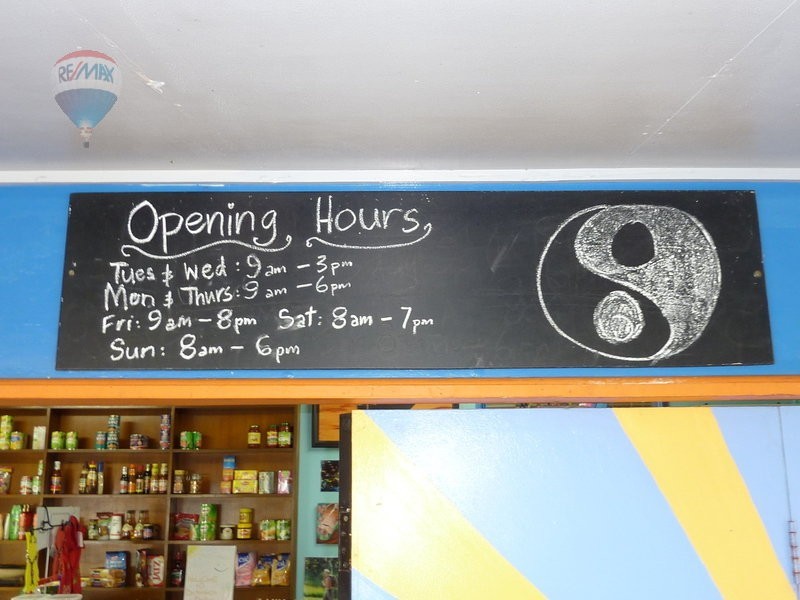 RE/MAX
Opening Hours
Tues & Wed: 9am - 3pm
Mon & Thurs: 9am - 6pm
Fri: 9am - 8pm Sat: 8am - 7pm
Sun: 8am - 6pm
JATZ